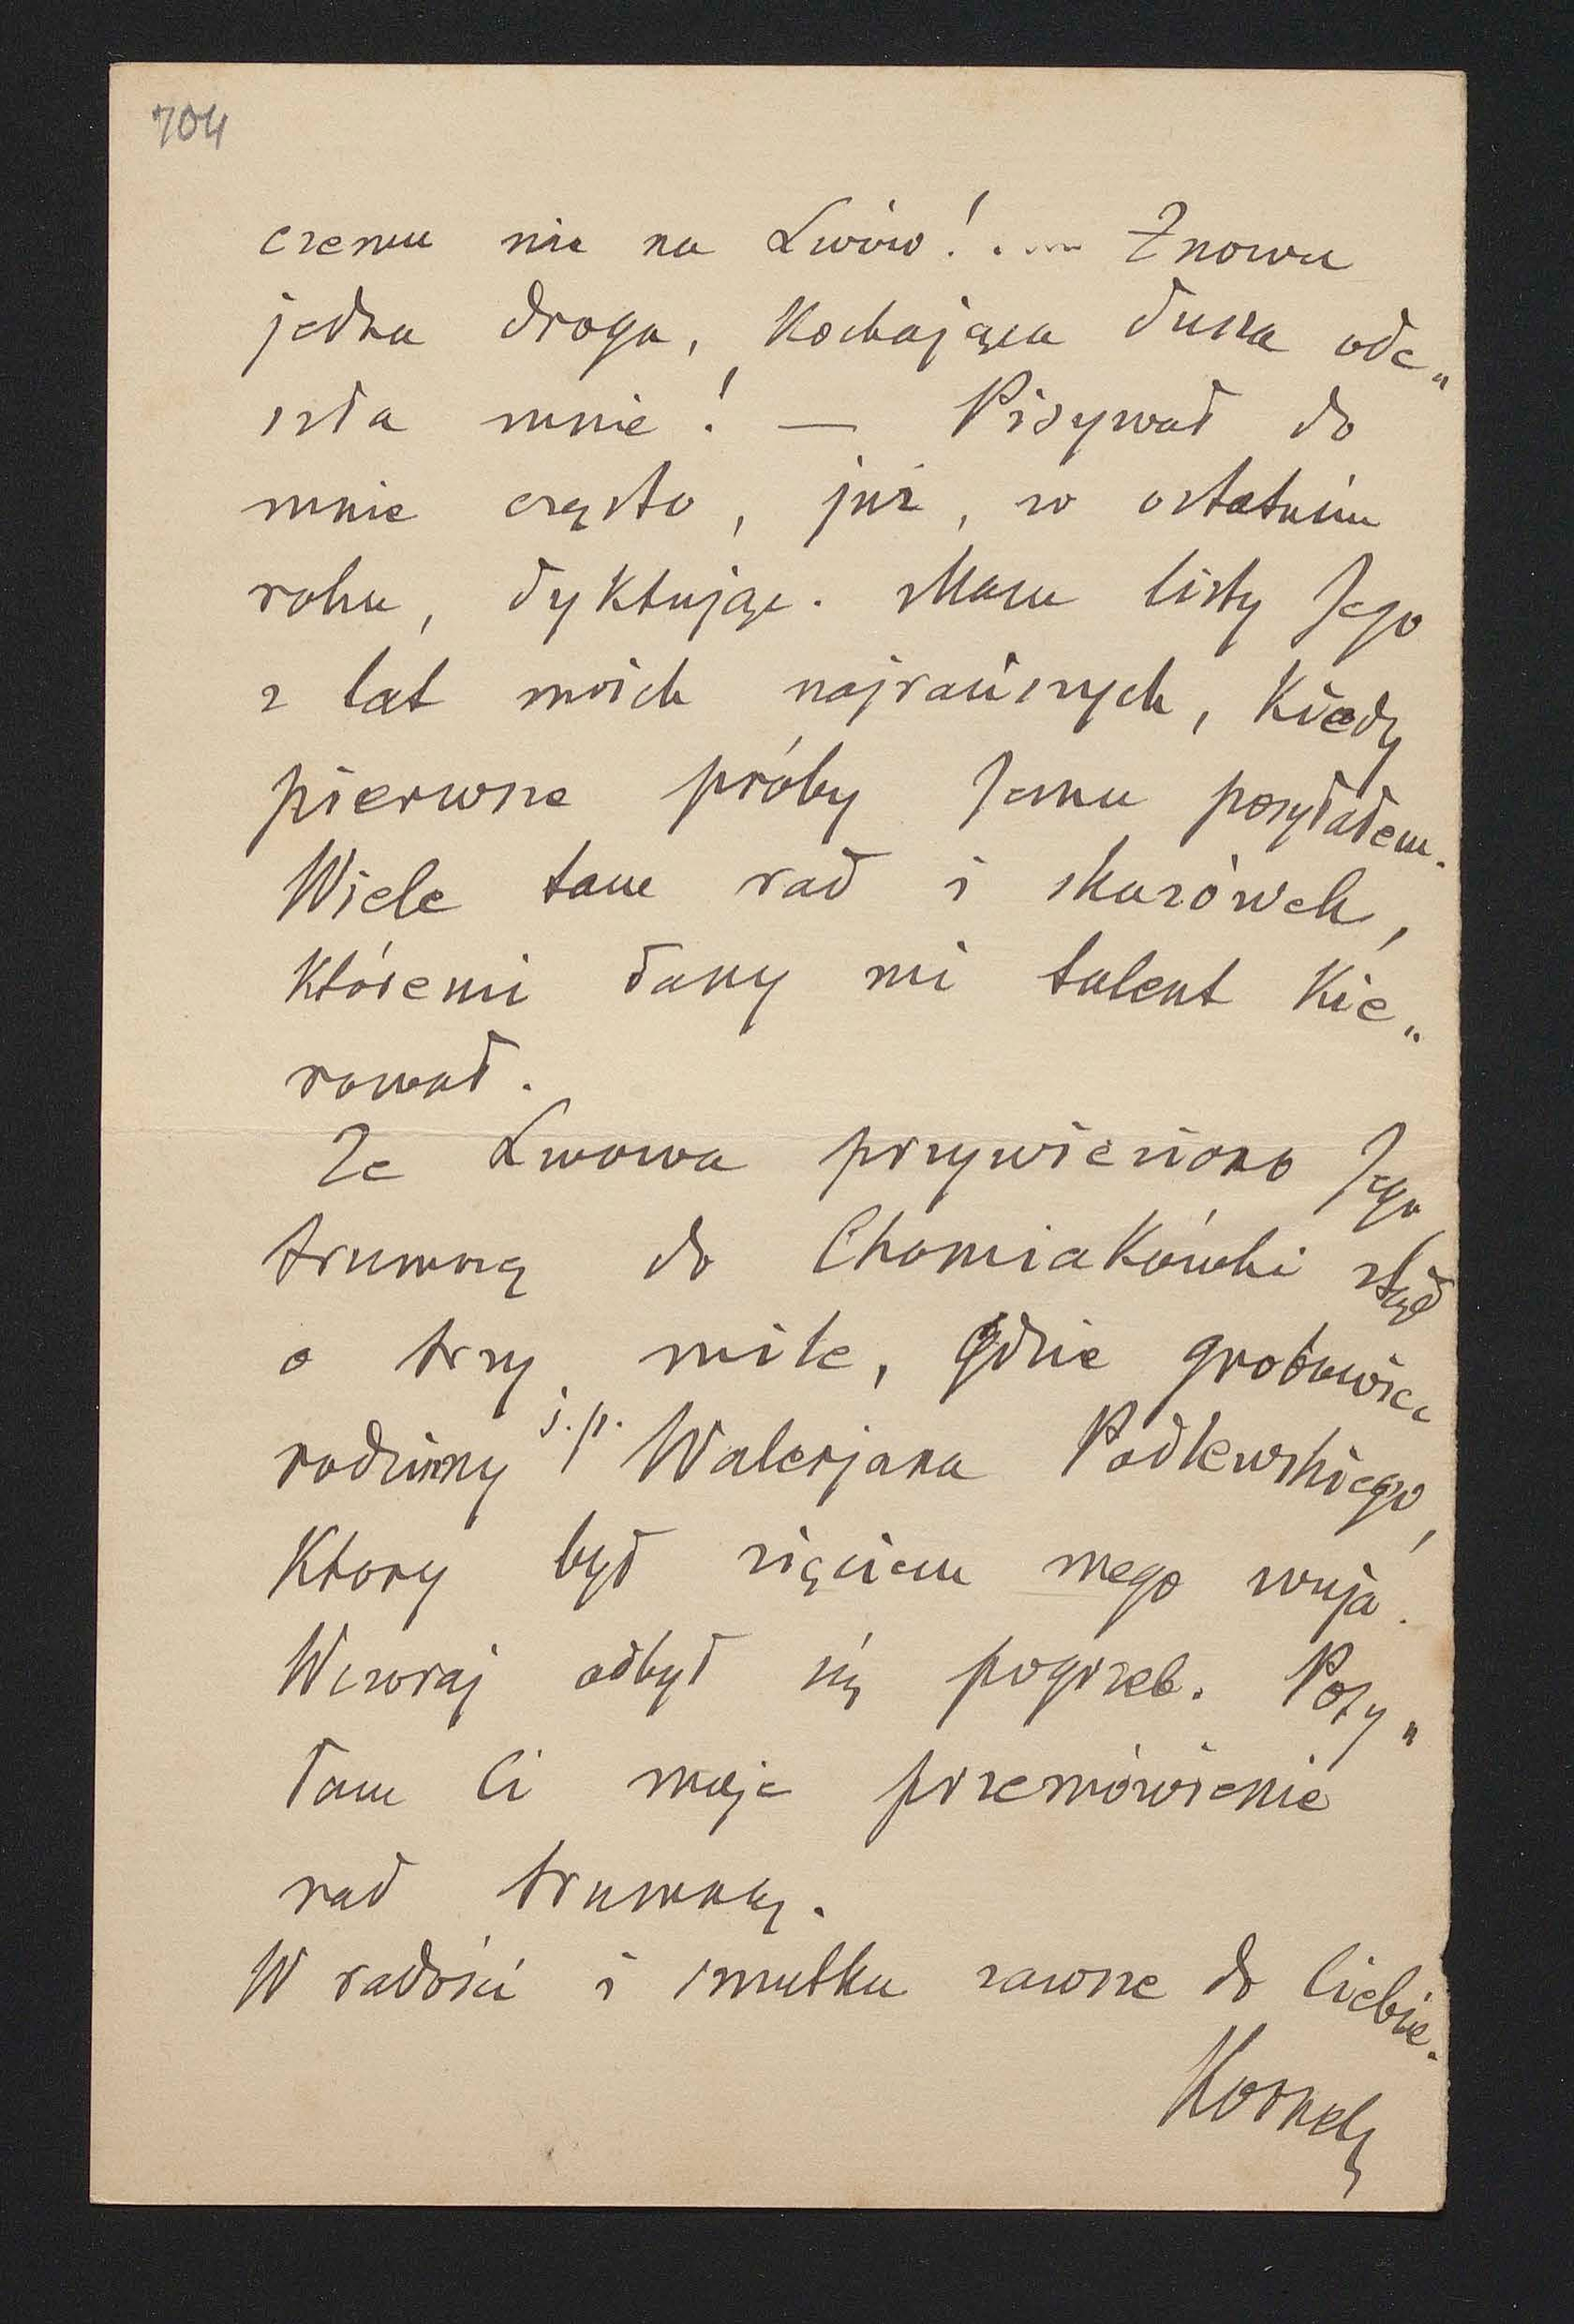 704
czemu nie na Lwów! .... Znowu
jedna droga, kochająca dusza ode„
szła mnie! — Pisywał do
mnie często, już, w ostatnim
roku, dyktując. Mam listy Jego
z lat moich najrańszych, kiedy
pierwsze próby Jemu posyłałem.
Wiele tam rad i skazówek,
któremi dany mi talent kie„
rował.
Ze Lwowa przywieziono Jego
trumnę do Chomiakówki stąd
o trzy mile, gdzie grobowiec
rodzinny ś.p. Walerjana Podlewskiego,
ktory był zięciem mego wuja.
Wczoraj odbył się pogrzeb. Posy„
łam Ci moje przemówienie
nad trumną.
W radości i smutku zawsze do Ciebie.
Kornel